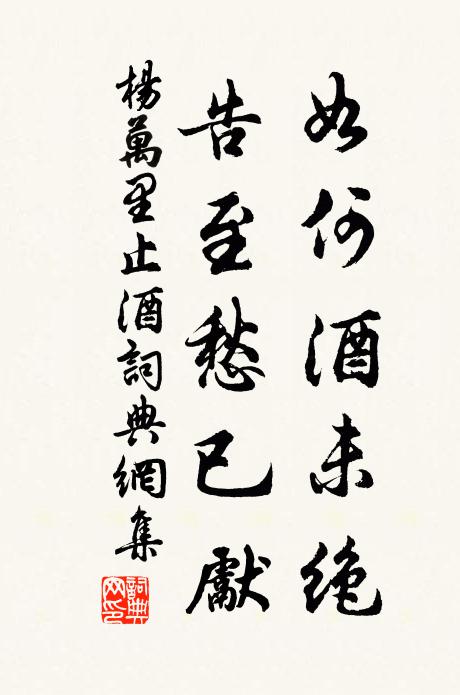 如何酒未絶
告至愁已獻
楊萬里止酒詞典網集
詞典網印